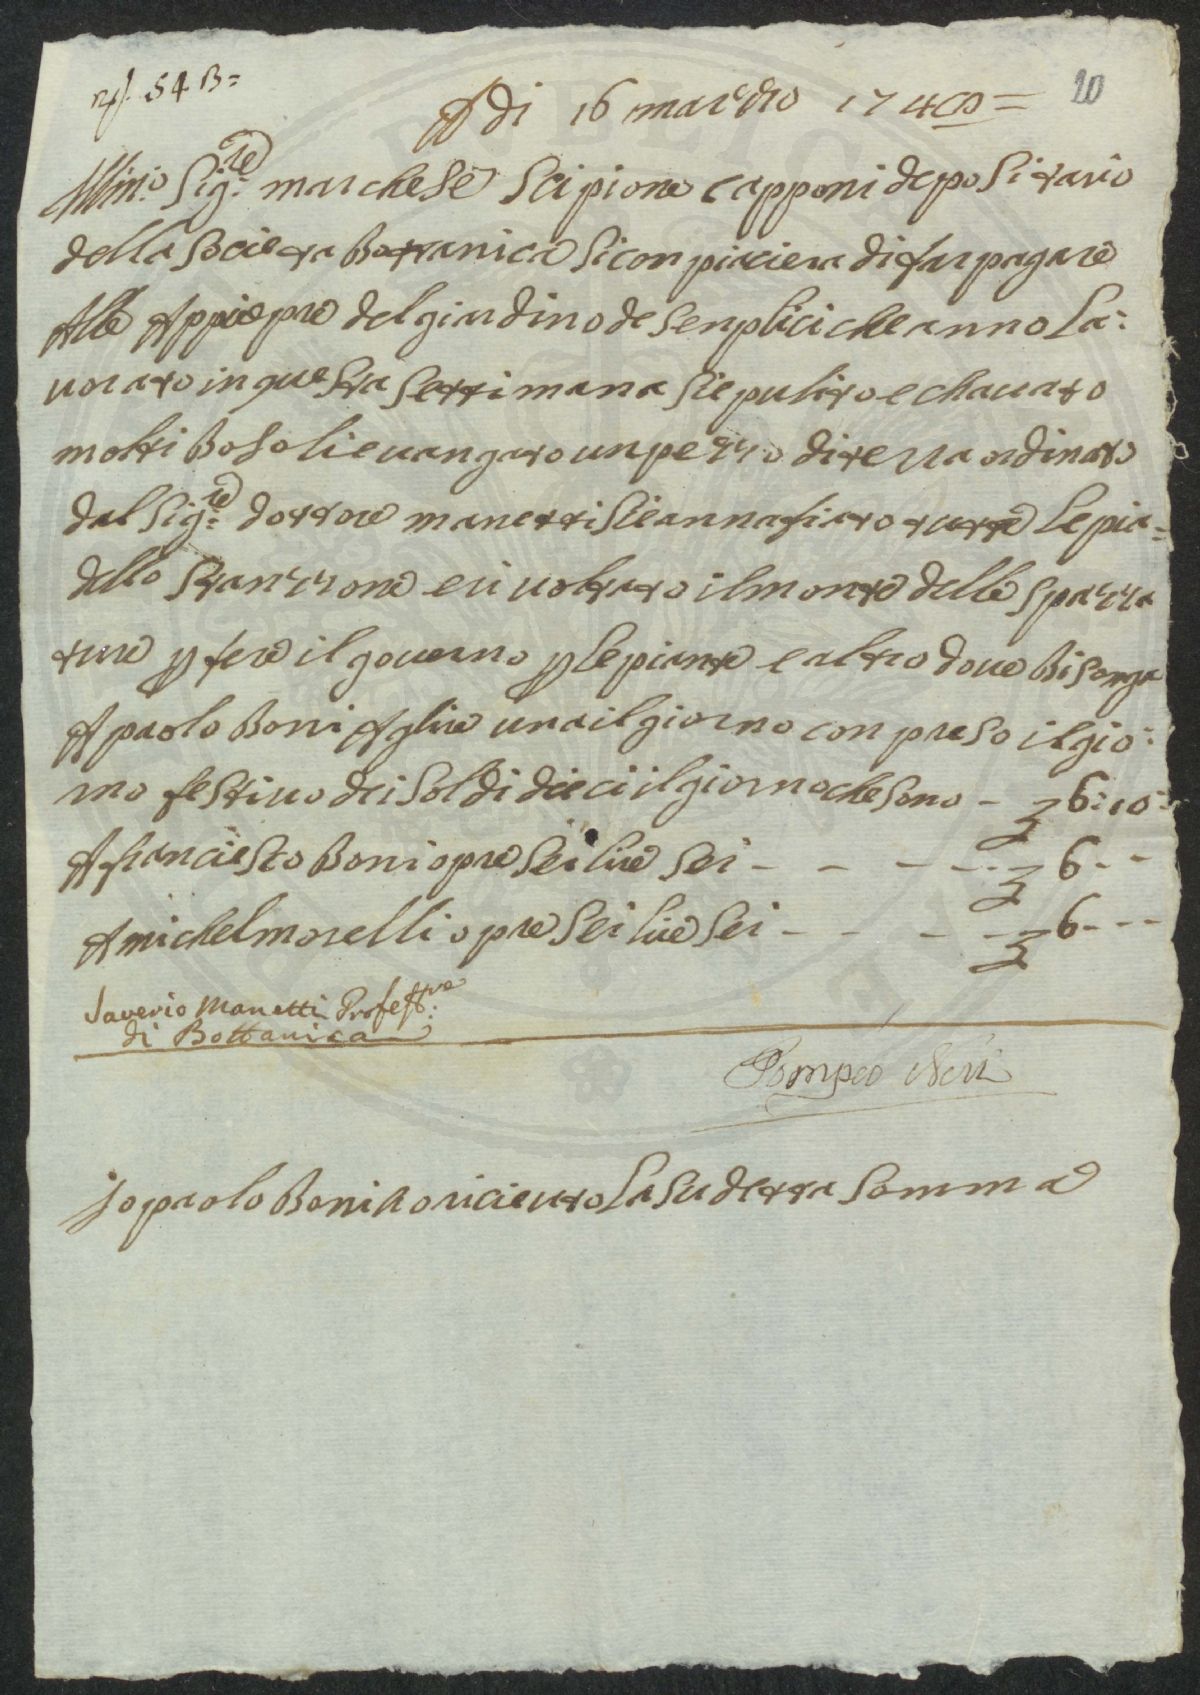 nº. 54 B=
20
A di 16 marzo 174
Illmo: Sig:re marchese Scipione capponi depositario
della Societa Bottanica Si conpiaciera di far pagare
Alle Appie opre del giardino de Senplici che anno La:
uorato in questa Settimana Sie pulito e chauato
molti Bosoli e uangato un pezzo di terra ordinato
dal Sig:re dottore manetti Sie annafiato tutte Le pia=
dello Stanzzone e riuoltato il monte delle Spazza
ture p fere il gouerno p le piante e altro doue Bisonga
A paolo Boni A lire una il giorno conpreso il gio:
rno festiuo dei Soldi dieci il giorno che Sono - 6:10:
A franciesco Boni opre Sei lire Sei - - - - 6 - -
A michel morelli opre Sei lire Sei - - - - 6 - - -
Saverio Manetti Profess:re
di Bottanica
Pompeo Neri
Io paolo Boni ho riceuto La Su detta Somma